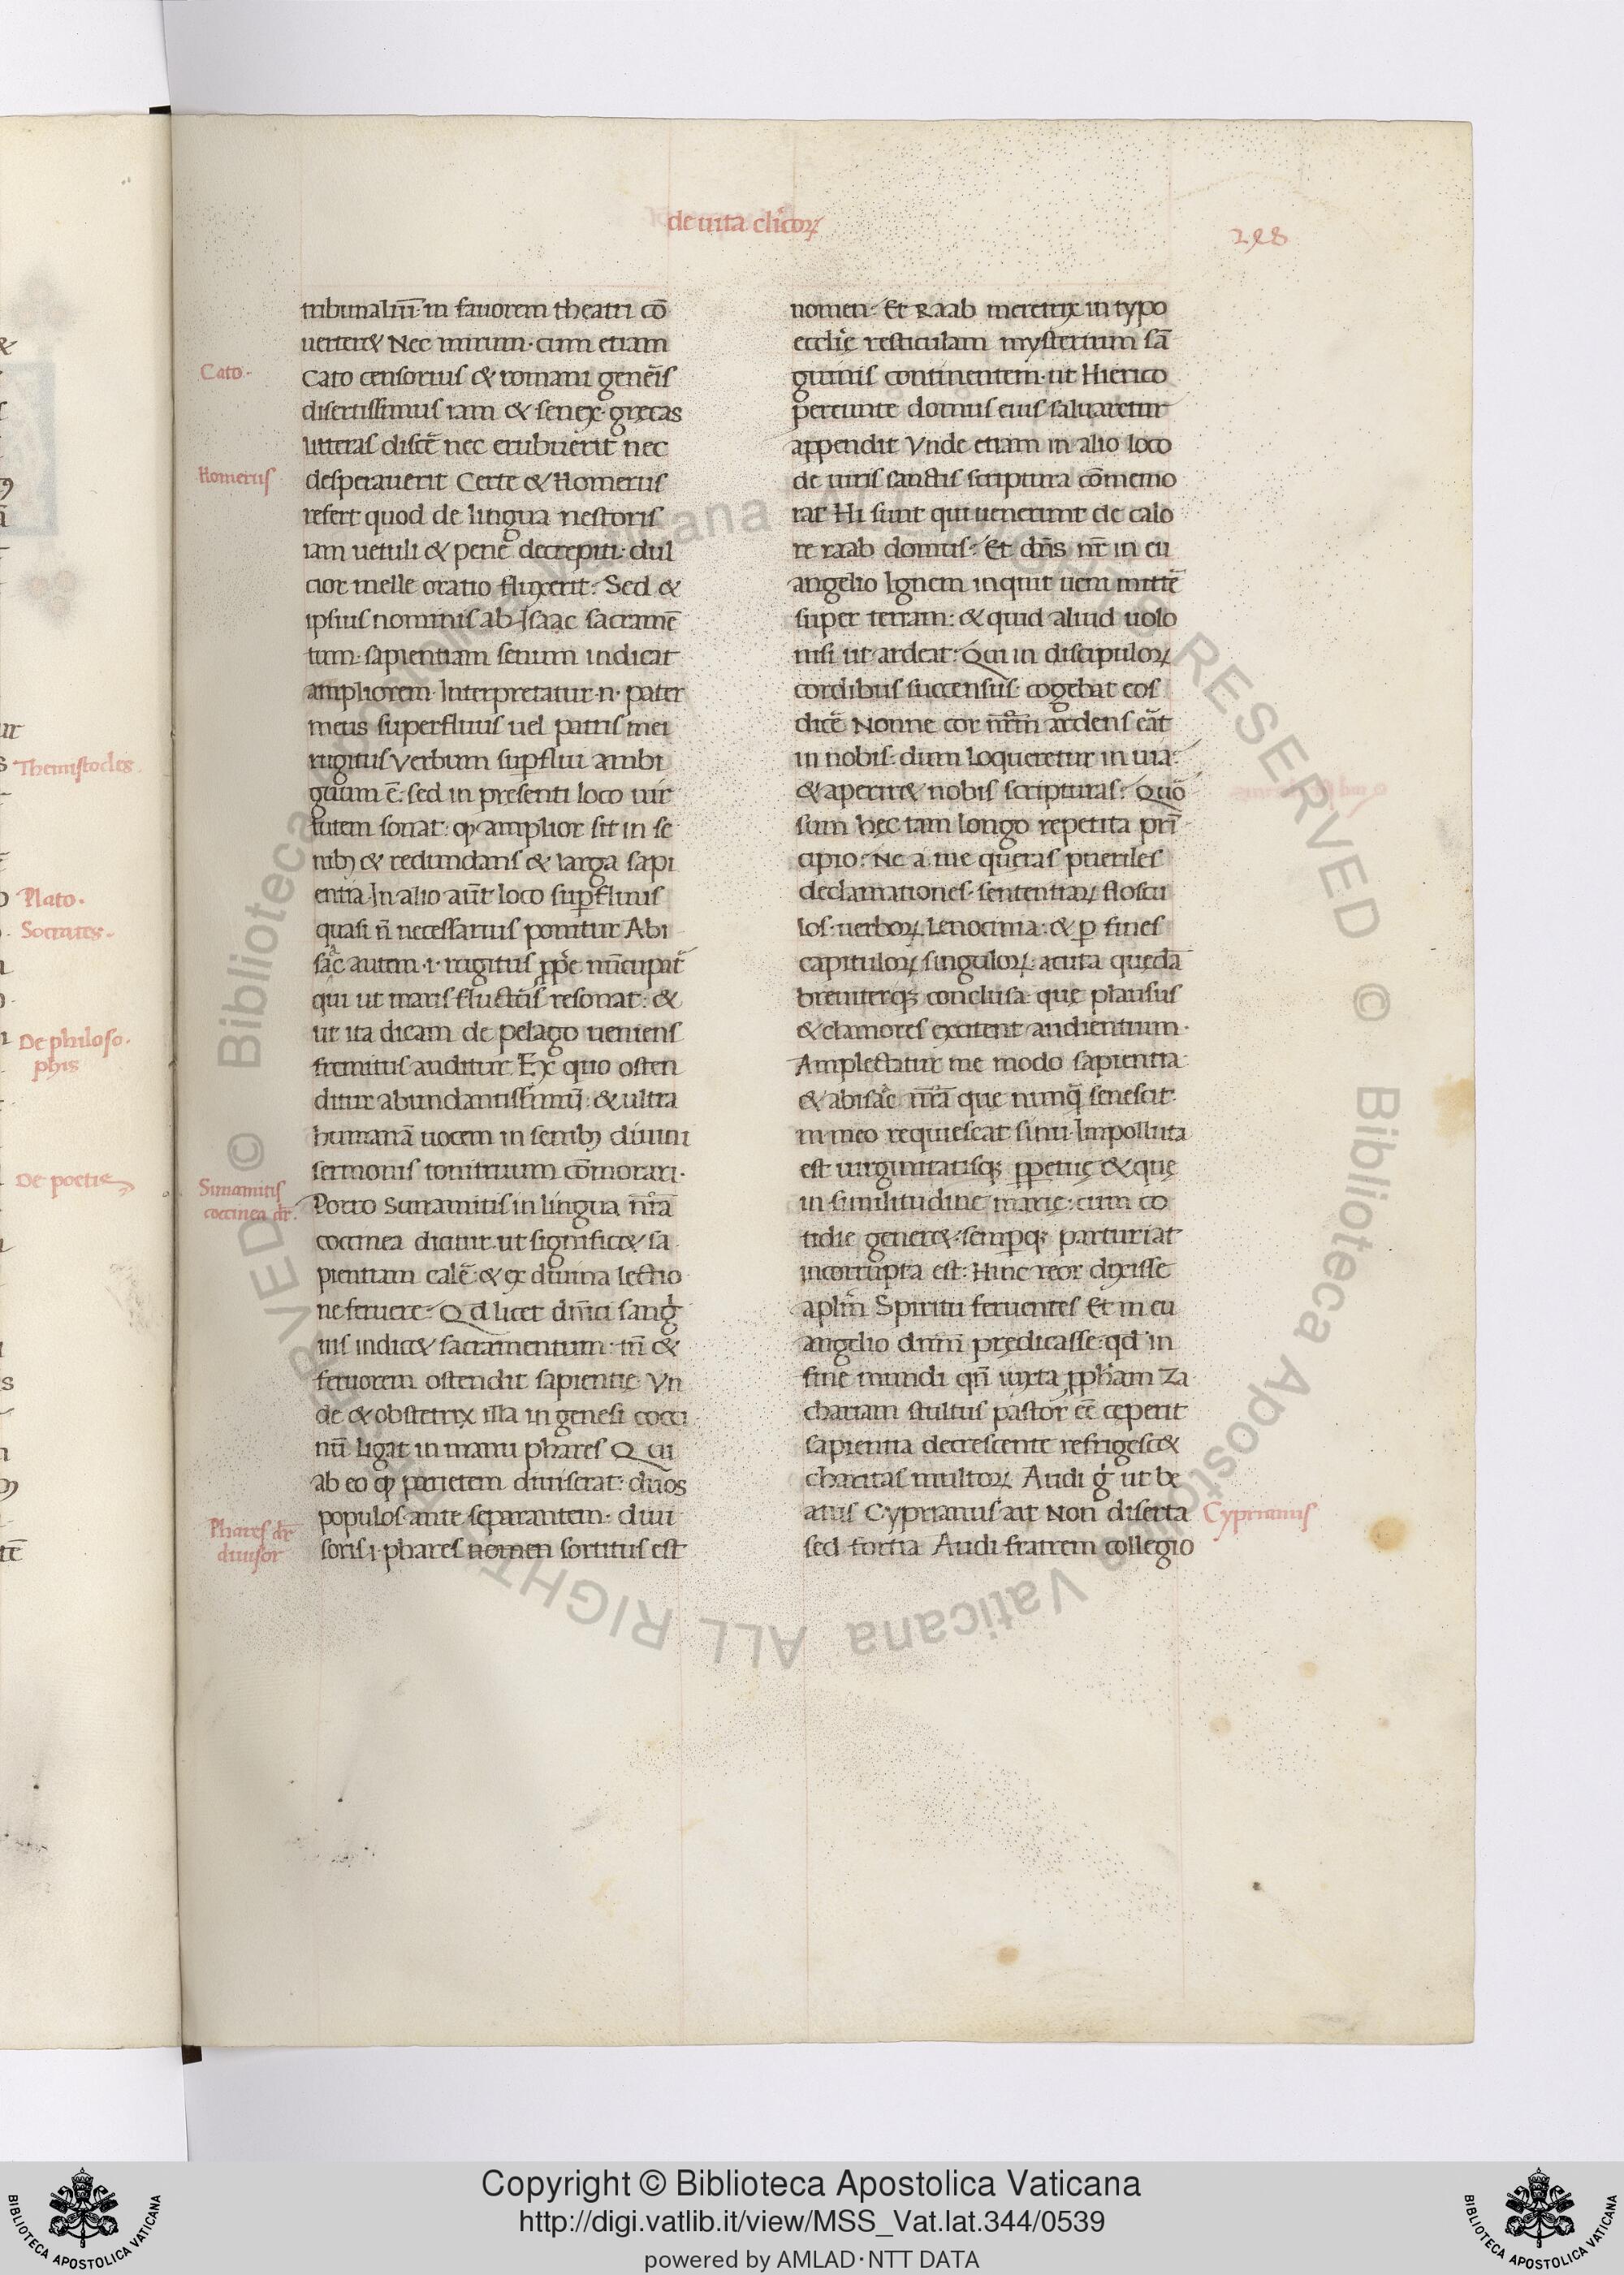 de uita clicoꝝ
298
tribunaliū· in fauorem theatri cō
uerteret Nec mirum· cum etiam
Cato censorius & romani genẽis
disertissimus iam & senex· grecas
litteras discē nec erubuerit nec
desperauerit Certe & Homerus
refert quod de lingua nestoris
iam uetuli & pene decrepiti· dul
cior melle oratio fluxerit· Sed &
ipsius nominis ab Isaac sacramē
tum· sapientiam senum indicat
ampliorem· Interpretatur·n· pater
meus superfluus uel patris mei
rugitus Verbum supflui ambi
guum ē· sed in presenti loco uir
tutem sonat· qꝫ amplior sit in se
nibꝫ & redundans & larga sapi
entia· In alio aūt loco supfluus
quasi n̄ necessarius ponitur Abi
sac autem ·i· rugitus ꝓprie nūcupat
qui ut maris fluctus resonat· &
ut ita dicam de pelago ueniens
fremitus auditur Ex quo osten
ditur abundantissimū· & ultra
humanā uocem in senibꝫ diuini
sermonis tonitruum cōmorari·
Porro Sunamitis in lingua nr̄a
coccinea dicitur· ut significet sa
pientiam calē· & ex diuina lectio
ne feruere· Qd licet dn̄ici sang
uis indicet sacramentum· tn̄ &
feruorem ostendit sapientie Vn
de & obstetrix illa in genesi cocci
nū ligat in manu phares Qui
ab eo qꝫ parietem diuiserat· duos
populos ante separantem· diui
soris ·i· phares nomen sortitus est
nomen· Et Raab meretrix in typo
ecclie resticulam mysterium sā
guinis continentem· ut Hierico
pereunte domus eius saluaretur
appendit Vnde etiam in alio loco
de uiris sanctis scriptura cōmemo
rat Hi sunt qui uenerunt de calo
re raab domus· Et dn̄s nr̄ in eu
angelio Ignem inquit ueni mittē
super terram· & quid aliud uolo
nisi ut ardeat· Qui in discipuloꝝ
cordibus succensus· cogebat eos
dicē Nonne cor nr̄m ardens erat
in nobis· dum loqueretur in uia·
& aperiret nobis scripturas· Quo
sum hec tam longo repetita prī
cipio· Ne a me queras pueriles
declamationes· sententiaꝝ floscu
los· uerboꝝ lenocinia· & p fines
capituloꝝ singuloꝝ· acuta quedā
breuiterqꝫ conclusa· que plausus
& clamores excitent audientium·
Amplectatur me modo sapientia·
& abisac nr̄a que nunq̄ senescit·
in meo requiescat sinu· Impolluta
est uirginitatisqꝫ ꝑpetuę & que
in similitudine marie· cum co
tidie generet· sempqꝫ parturiat
incorrupta est· Hinc reor dixisse
aplm̄ Spiritu feruentes Et in eu
angelio dnm̄ predicasse· qd in
fine mundi qn̄ iuxta ꝓpham Za
chariam stultus pastor ēē ceperit
sapientia decrescente refrigescet
charitas multoꝝ Audi g ut be
atus Cyprianus ait Non diserta
sed fortia Audi fratrem collegio
Cato·
Homerus
Sunamitis
coccinea dr̄·
Phares dr̄
diuisor
Cyprianus
Themistocles
Plato·
Socrates·
De philoso·
phis
De poetis
Copyright © Biblioteca Apostolica Vaticana
http://digi.vatlib.it/view/MSS_Vat.lat.344/0539
powered by AMLAD·NTT DATA
BIBLIOTECA APOSTOLICA VATICANA
BIBLIOTECA APOSTOLICA VATICANA
© Biblioteca Apostolica Vaticana ALL RIGHTS RESERVED © Biblioteca Apostolica Vaticana ALL RIGHTS RESERVED